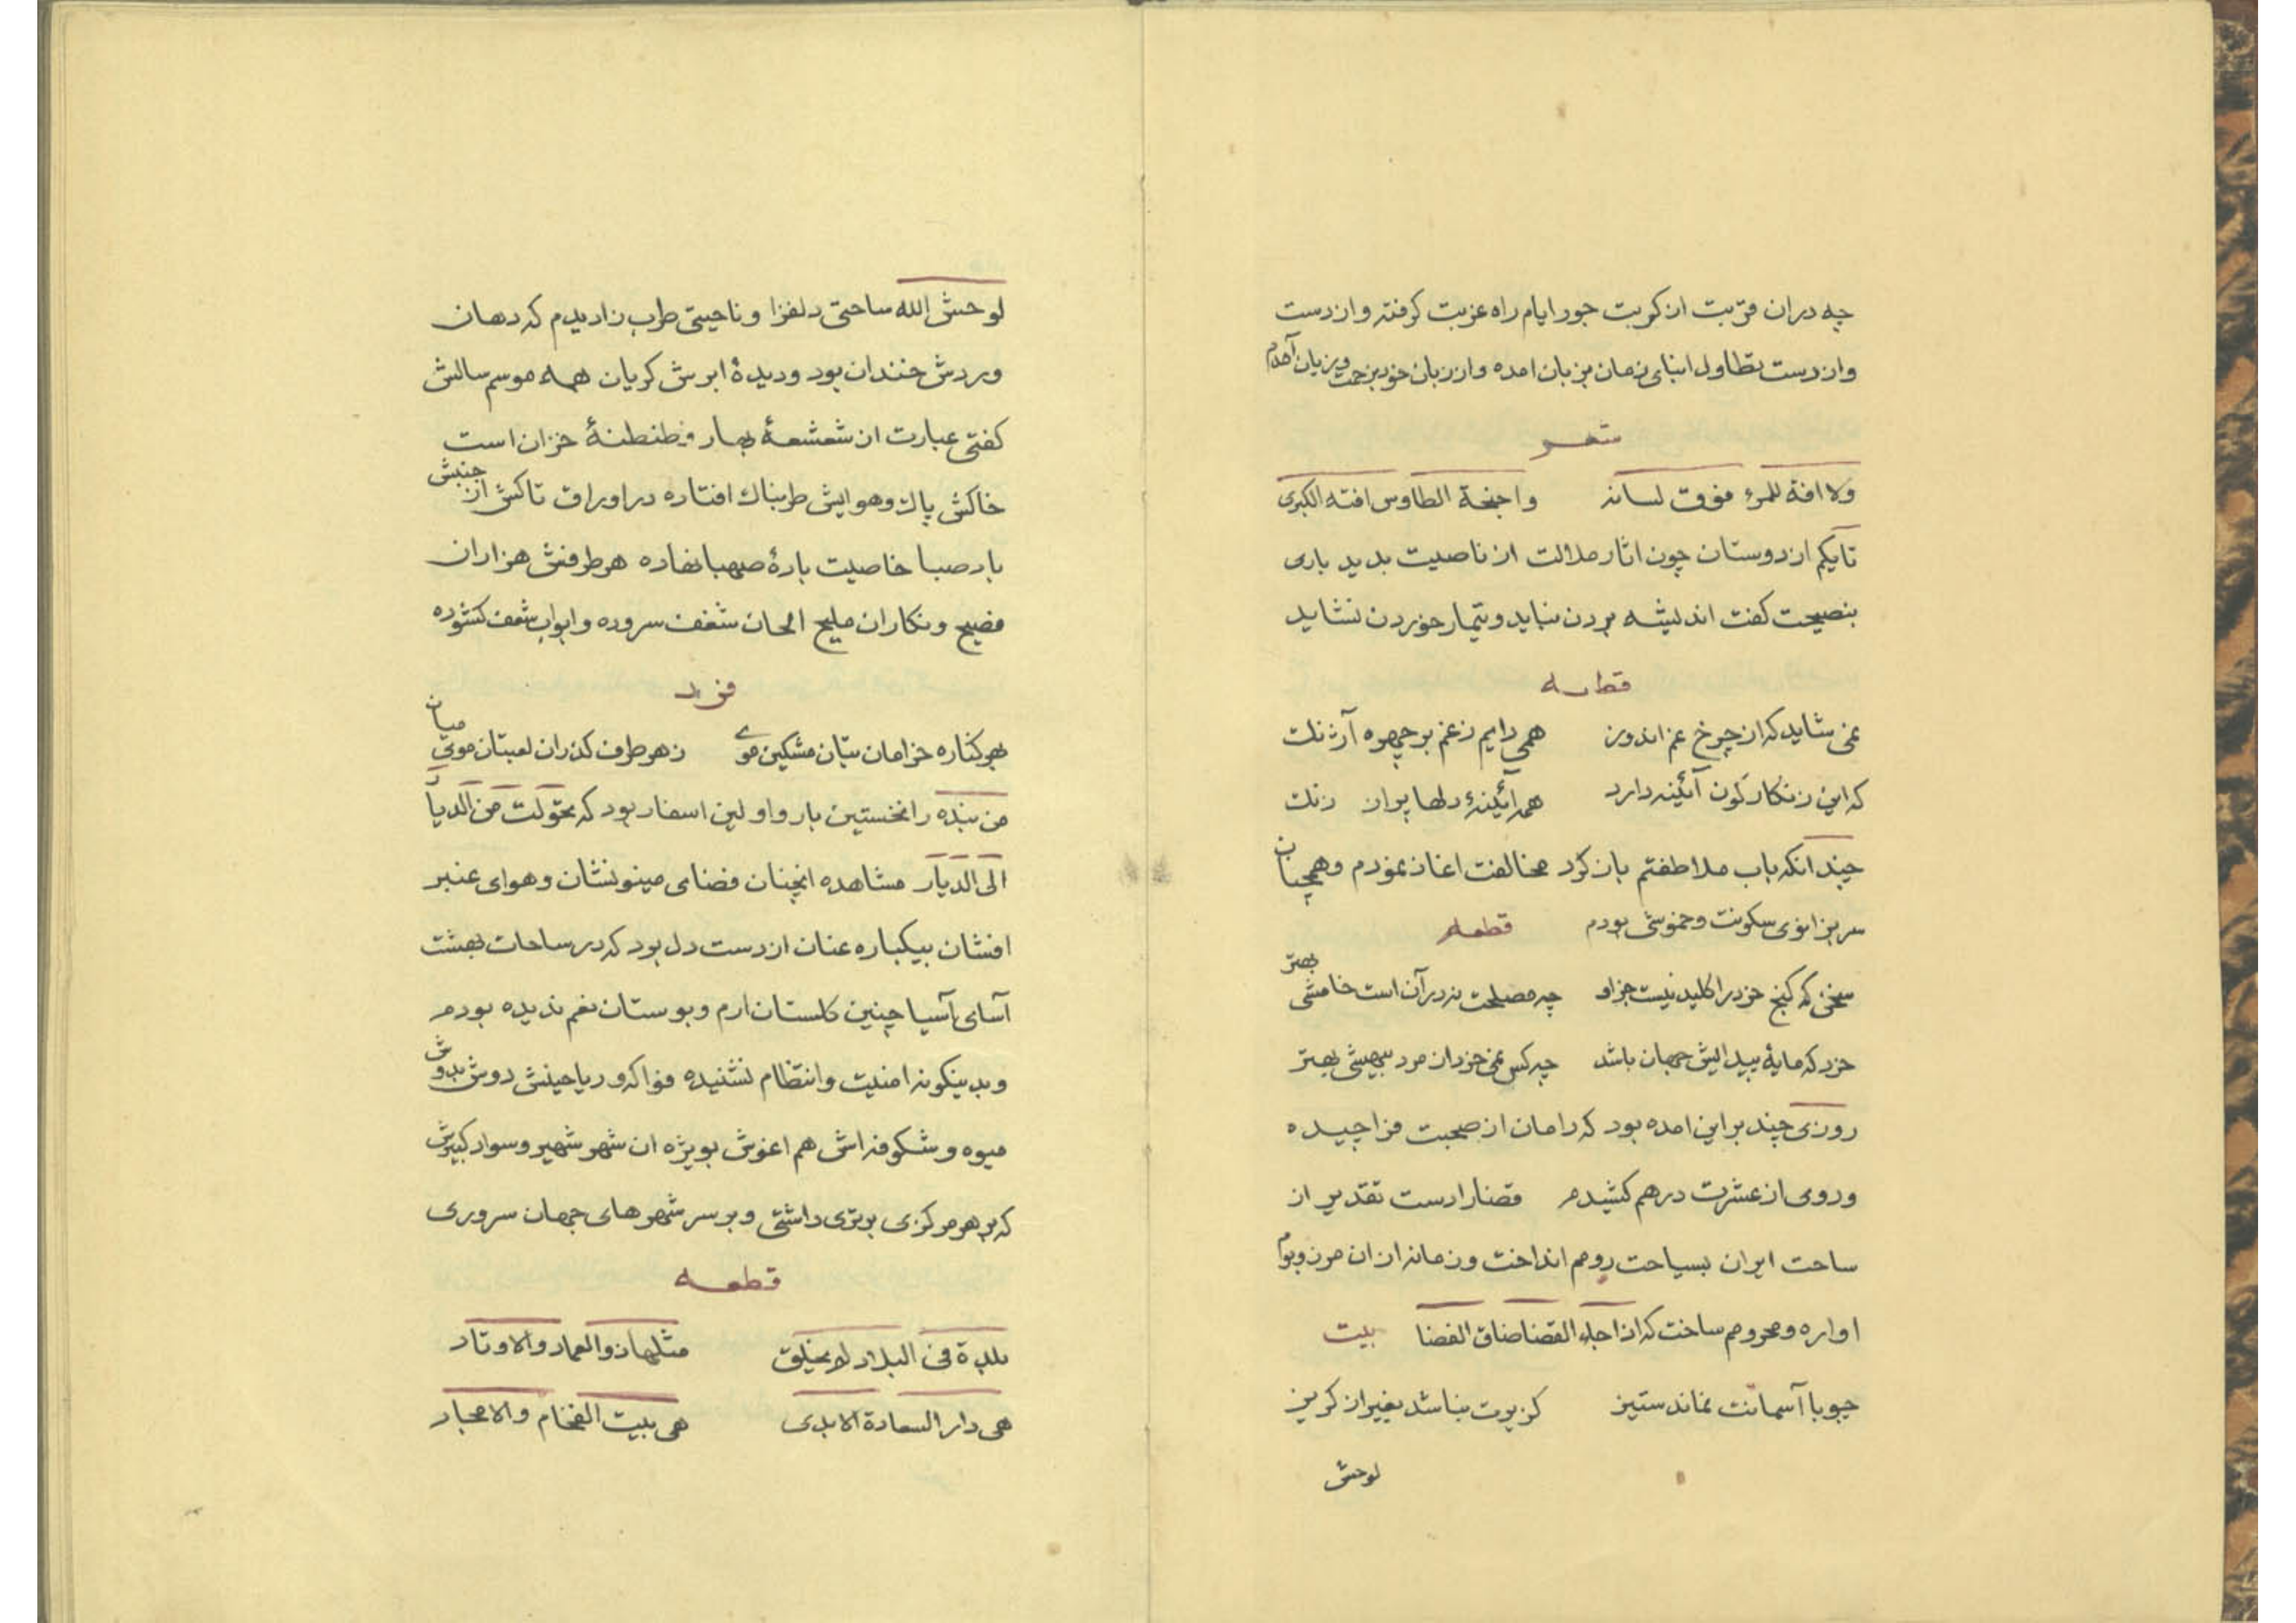 چه دران قربت از کربت جور ایام راه عزبت کرفته و از دست
واز دست تطاول ابنای زمان بزبان امده واز زبان خود بزحمت وبزیان آمدم
شعر
ولا افة للمرء فوق لسانه واجنحة الطاوس افته الکبری
تا یکم از دوستان چون اثار ملالت از ناصیت بدید باری
بنصیحت کفت اندیشه بردن نباید و تیمار خوردن نشاید
قطعه
نمی شاید که از چرخ غم اندوز همی دایم ز غم بر چهره آژنك
که این زنکارکون آئینه دارد همه آئینهٔ دلها پر از زنك
چند انکه باب ملاطفتم باز کرد مخالفت اغاز نمودم و همچنان
سر بزانوی سکونت و خموشی بودم قطعه
سخن که کنج خرد را کلید نیست جز او چه مصلحت نه در آن است خامشی بهتر
خرد که مایهٔ پیدایش جهان باشد چه کس نمی خرد ان مرد بیهشی بهتر
روزی چند بر این امده بود که دامان از صحبت فرا چیده
وروی از عشرت درهم کشیدم قضا را دست تقدیر از
ساحت ایران بسیاحت رومم انداخت و زمانه از ان مرز وبوم
اواره و محرومم ساخت که اذا جاء القضا ضاق الفضا بیت
چو با آسمانت نماند ستیز کزیرت نباشد بغیر از کریز
لوحش
لوحش الله ساحتی دلفزا و ناحیتی طرب زا دیدم که دهان
وردش خندان بود و دیدهٔ ابرش کریان همه موسم سالش
کفتی عبارت از شعشعهٔ بهار و طنطنهٔ خزان است
خاکش پاك و هوایش طربناك افتاده در اوراق تاکش از جنبش
باد صبا خاصیت بادهٔ صهبا نهاده هر طرفش هزاران
فصیح و نکاران ملیح الحان شغف سروده و ابواب شعف کشوده
فرد
بهر کناره خرامان بتان مشکین موے ز هر طرف کذران لعبتان موی میان
من بنده را نخستین بار و اولین اسفار بود که تحوّلت من الدیار
الی الدیار مشاهده انچنان فضای مینو نشان و هوای عنبر
افشان بیکباره عنان از دست دل بود که در ساحات بهشت
آسای آسیا چنین کلستان ارم و بوستان نغم ندیده بودم
و بدینکونه امنیت و انتظام نشنیده فواکه و ریاحینش دوش بدوش
میوه و شکوفه اش هم اغوش بویژه ان شهر شهیر و سواد کبیرش
که بر هر مرکزی برتری داشتی و بر سر شهرهای جهان سروری
قطعه
بلدة فی البلاد لم یخلق مثلها ذو العماد والاوتاد
هی دار السعادة الابدی هی بیت الفخام والامجاد